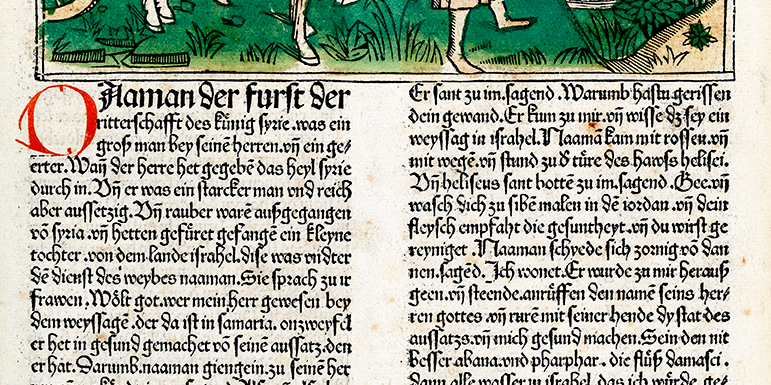 Naaman der furst der
ritterschafft des künig syrie.was ein
groß man bey seinē herren.vñ ein ge-
erter.Wañ der herre het gegebē das heyl syrie
durch in.Vñ er was ein starcker man vnd reich
aber aussetzig.Vñ rauber warē außgegangen
vō syria.vñ hetten gefüret gefangē ein kleyne
tochter.von dem lande israhel.dise was vndter
dē dienst des weybes naaman.Sie sprach zu ir
frawen.Wölt got.wer mein herr gewesen bey
dem weyssagē.der da ist in samaria.on zweyfel
er het in gesund gemachet vō seinē aussatz.den
er hat.Darumb.naaman giengein.zu seinē her
Er sant zu im.sagend.Warumb hastu gerissen
dein gewand.Er kum zu mir.vñ wisse dz sey ein
weyssag in israhel.Naamā kam mit rossen.vñ
mit wegē.vñ stund zu d türe des hawss helisei.
Vñ heliseus sant bottē zu im.sagend.Gee.vñ
wasch dich zu sibē malen in dē iordan.vñ dein
fleysch empfaht die gesuntheyt.vñ du wirst ge
reyniget.Naaman schyede sich zornig vō dan
nen.sagēd.Ich wonet.Er wurde zu mir herauß
geen.vñ steende.anrüffen den namē seins her-
ren gottes.vñ rurē mit seiner hende dy stat des
aussatzs.vñ mich gesund machen.Sein den nit
besser abana.vnd pharphar.die flüß damasci.
dann alle wasser in israhel.das ich würde.ge-